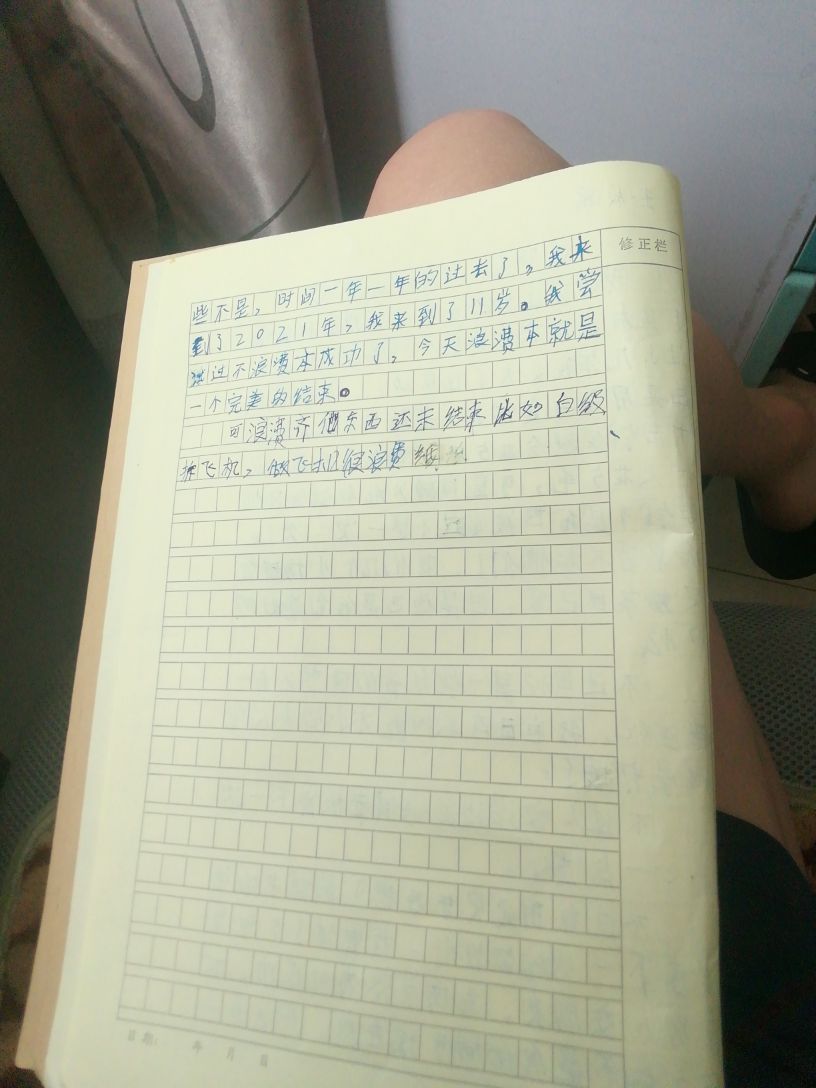 修正栏
些不是，时间一年一年的过去了，我来
到了2021年，我来到了11岁。我尝
试过不浪费本成功了，今天浪费本就是
一个完美的结束。
可浪费齐他东西还未结束比如白纸
折飞机，做飞机很浪费纸
日期： 年 月 日